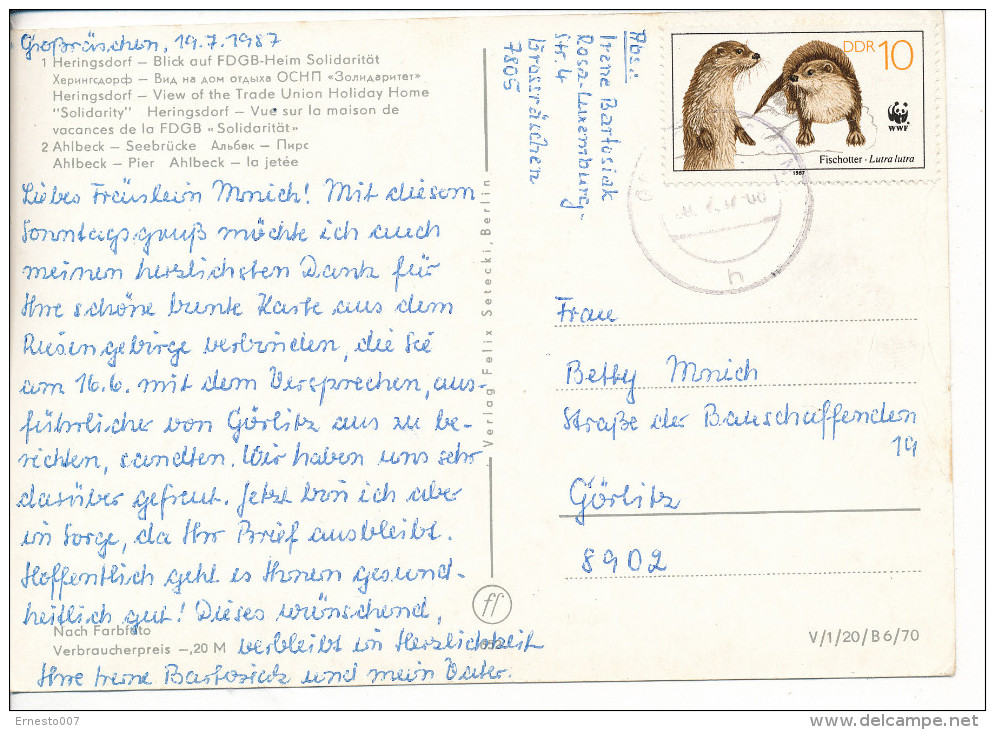 Großräschen, 19.7.1987
1 Heringsdorf – Blick auf FDGB-Heim Solidarität
Херингсдорф – Вид на дом отдыха ОСНП «Золидаритет»
Heringsdorf – View of the Trade Union Holiday Home
"Solidarity" Heringsdorf – Vue sur la maison de
vacances de la FDGB «Solidarität»
2 Ahlbeck – Seebrücke Альбек – Пирс
Ahlbeck – Pier Ahlbeck – la jetée
Liebes Fräulein Mnich! Mit diesem
Sonntagsgruß möchte ich auch
meinen herzlichsten Dank für
Ihre schöne bunte Karte aus dem
Riesengebirge verbinden, die Sie
am 16.6. mit dem Versprechen, aus-
führlicher von Görlitz aus zu be-
richten, sandten. Wir haben uns sehr
darüber gefreut. Jetzt bin ich aber
in Sorge, da Ihr Brief ausbleibt.
Hoffentlich geht es Ihnen gesund-
heitlich gut! Dieses wünschend,
verbleibt in Herzlichkeit
Ihre Irene Bartosiak und mein Vater.
Nach Farbfoto
Verbraucherpreis –,20 M
Verlag Felix Setecki, Berlin
ff
Abs.:
Irene Bartosiak
Rosa-Luxemburg-
Str. 4
Grossräschen
7805
DDR 10
WWF
Fischotter · Lutra lutra
1987
Frau
Betty Mnich
Straße der Bauschaffenden
19
Görlitz
8902
V/1/20/B6/70
Ernesto007
delcampe.net